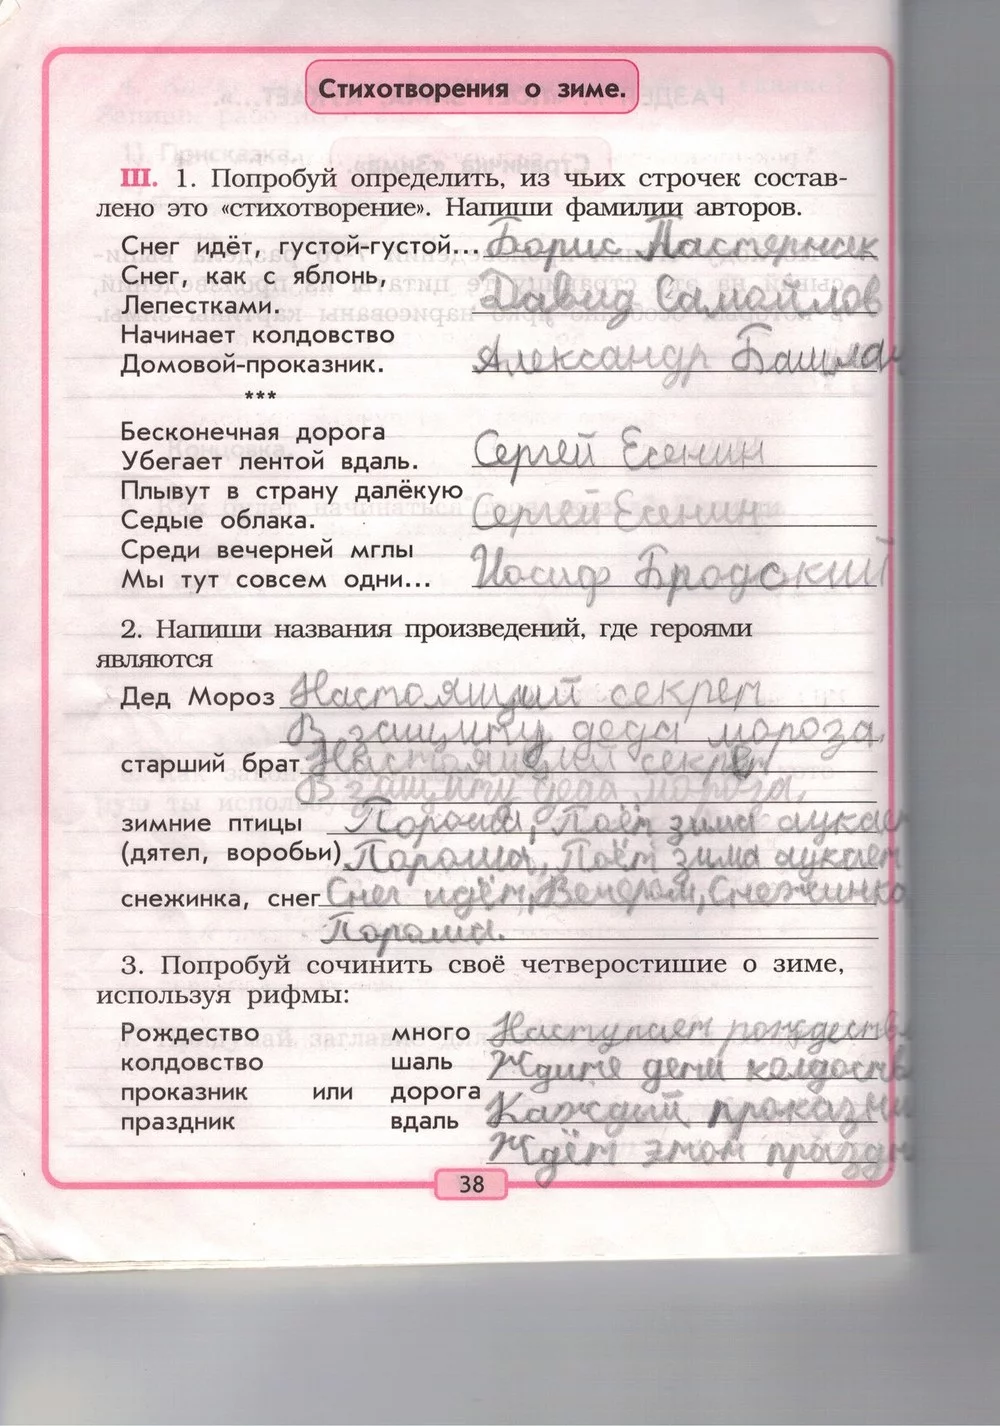 Стихотворения о зиме.
III. 1. Попробуй определить, из чьих строчек состав-
лено это «стихотворение». Напиши фамилии авторов.
Снег идёт, густой-густой... Борис Пастернак
Снег, как с яблонь,
Лепестками. Давид Самойлов
Начинает колдовство
Домовой-проказник. Александр Башла
***
Бесконечная дорога
Убегает лентой вдаль. Сергей Есенин
Плывут в страну далёкую
Седые облака. Сергей Есенин
Среди вечерней мглы
Мы тут совсем одни... Иосиф Бродский
2. Напиши названия произведений, где героями
являются
Дед Мороз Настоящий секрет
В защиту деда мороза.
старший брат Настоящий секрет
В защиту деда мороза,
зимние птицы Пороша, Поёт зима аукает
(дятел, воробьи) Пороша, Поёт зима аукает
снежинка, снег Снег идёт, Вечером, Снежинка
Пороша.
3. Попробуй сочинить своё четверостишие о зиме,
используя рифмы:
Рождество много Наступает рождеств
колдовство шаль Ждите дети колдоств
проказник или дорога Каждий проказни
праздник вдаль Ждёт этот праздн
38